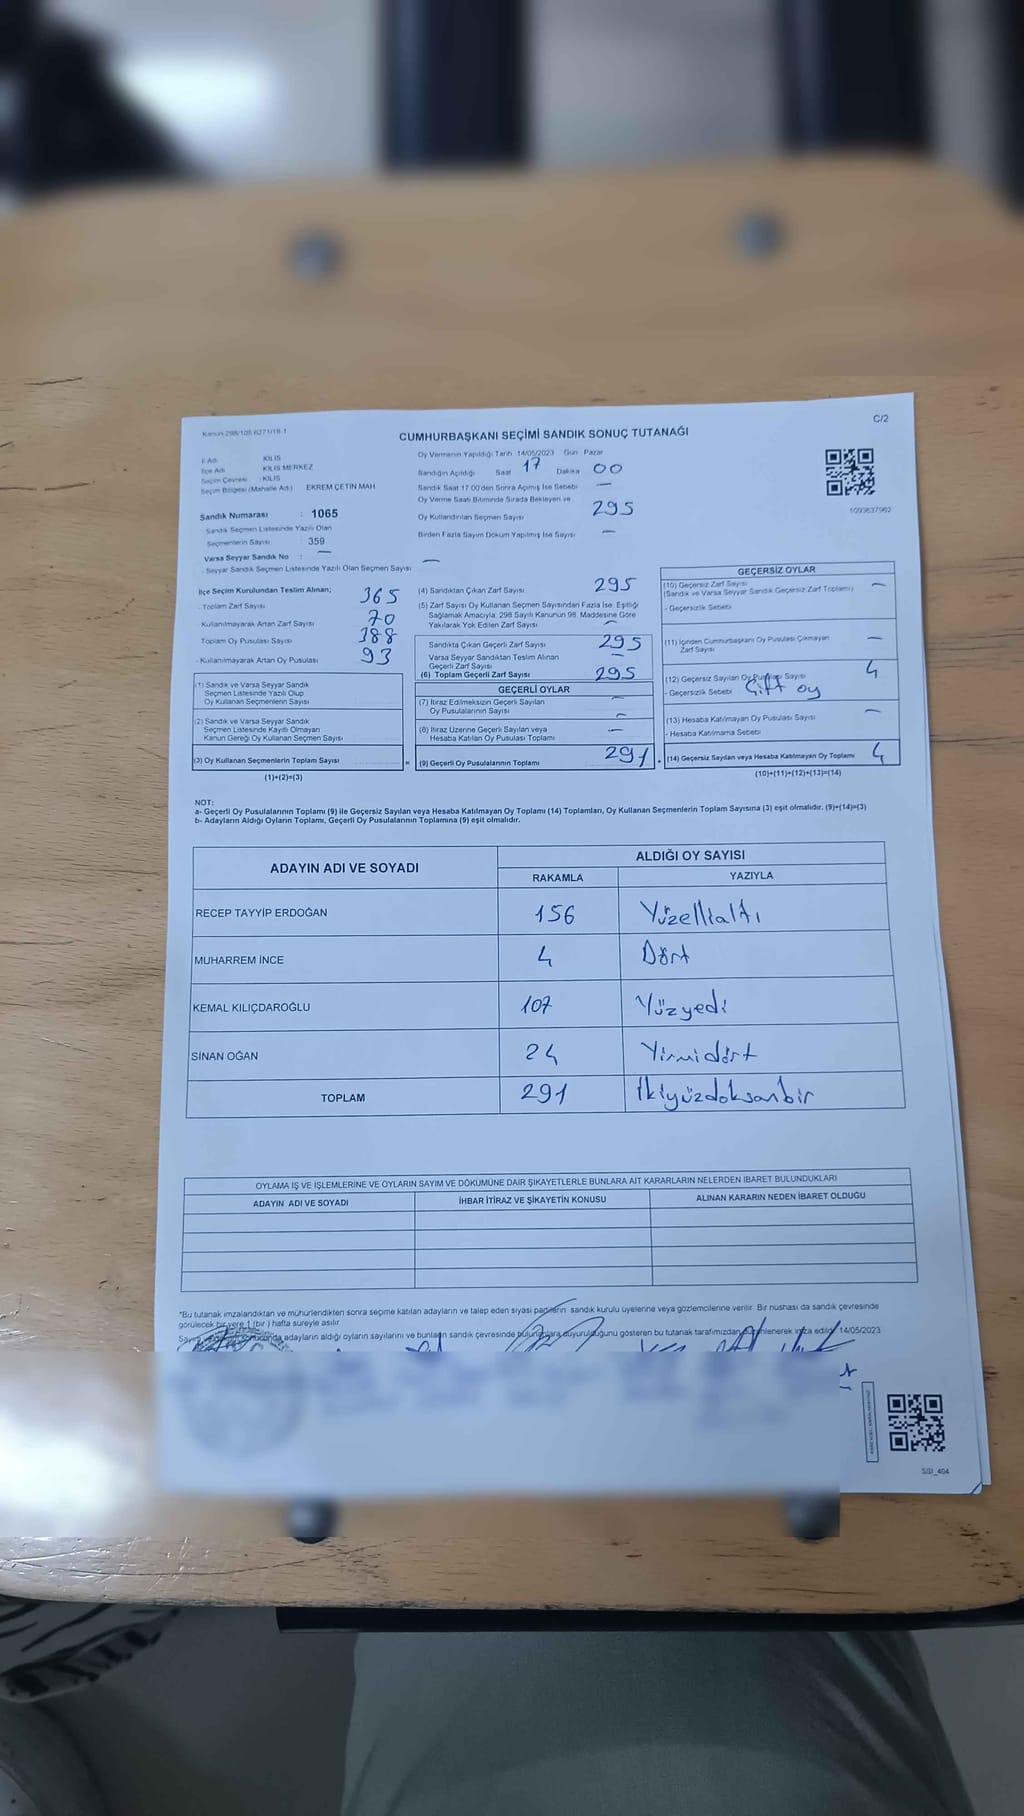 C/2
Kanun 298/105 6271/18-1
CUMHURBAŞKANI SEÇİMİ SANDIK SONUÇ TUTANAĞI
İl Adı KİLİS
İlçe Adı KİLİS MERKEZ
Seçim Çevresi : KİLİS
Seçim Bölgesi (Mahalle Adı) EKREM ÇETİN MAH
Sandık Numarası : 1065
- Sandık Seçmen Listesinde Yazılı Olan
Seçmenlerin Sayısı : 359
Varsa Seyyar Sandık No : —
- Seyyar Sandık Seçmen Listesinde Yazılı Olan Seçmen Sayısı : —
Oy Vermenin Yapıldığı Tarih 14/05/2023 Gün Pazar
Sandığın Açıldığı Saat 17 Dakika 00
Sandık Saat 17.00'den Sonra Açılmış İse Sebebi —
Oy Verme Saati Bitiminde Sırada Bekleyen ve
Oy Kullandırılan Seçmen Sayısı 295
Birden Fazla Sayım Döküm Yapılmış İse Sayısı —
1093637962
İlçe Seçim Kurulundan Teslim Alınan;
- Toplam Zarf Sayısı 365
Kullanılmayarak Artan Zarf Sayısı 70
Toplam Oy Pusulası Sayısı 388
- Kullanılmayarak Artan Oy Pusulası 93
(1) Sandık ve Varsa Seyyar Sandık
Seçmen Listesinde Yazılı Olup
Oy Kullanan Seçmenlerin Sayısı
(2) Sandık ve Varsa Seyyar Sandık
Seçmen Listesinde Kayıtlı Olmayan
Kanun Gereği Oy Kullanan Seçmen Sayısı
(3) Oy Kullanan Seçmenlerin Toplam Sayısı
(1)+(2)=(3)
=
(4) Sandıktan Çıkan Zarf Sayısı 295
(5) Zarf Sayısı Oy Kullanan Seçmen Sayısından Fazla İse, Eşitliği
Sağlamak Amacıyla; 298 Sayılı Kanunun 98. Maddesine Göre
Yakılarak Yok Edilen Zarf Sayısı —
Sandıkta Çıkan Geçerli Zarf Sayısı 295
Varsa Seyyar Sandıktan Teslim Alınan
Geçerli Zarf Sayısı —
(6) Toplam Geçerli Zarf Sayısı 295
GEÇERLİ OYLAR
(7) İtiraz Edilmeksizin Geçerli Sayılan
Oy Pusulalarının Sayısı —
(8) İtiraz Üzerine Geçerli Sayılan veya
Hesaba Katılan Oy Pusulası Toplamı —
(9) Geçerli Oy Pusulalarının Toplamı 291
GEÇERSİZ OYLAR
(10) Geçersiz Zarf Sayısı —
(Sandık ve Varsa Seyyar Sandık Geçersiz Zarf Toplamı)
- Geçersizlik Sebebi
(11) İçinden Cumhurbaşkanı Oy Pusulası Çıkmayan
Zarf Sayısı —
(12) Geçersiz Sayılan Oy Pusulası Sayısı 4
- Geçersizlik Sebebi Çift oy
(13) Hesaba Katılmayan Oy Pusulası Sayısı —
- Hesaba Katılmama Sebebi
(14) Geçersiz Sayılan veya Hesaba Katılmayan Oy Toplamı 4
(10)+(11)+(12)+(13)=(14)
NOT:
a- Geçerli Oy Pusulalarının Toplamı (9) ile Geçersiz Sayılan veya Hesaba Katılmayan Oy Toplamı (14) Toplamları, Oy Kullanan Seçmenlerin Toplam Sayısına (3) eşit olmalıdır. (9)+(14)=(3)
b- Adayların Aldığı Oyların Toplamı, Geçerli Oy Pusulalarının Toplamına (9) eşit olmalıdır.
ADAYIN ADI VE SOYADI ALDIĞI OY SAYISI
RAKAMLA YAZIYLA
RECEP TAYYİP ERDOĞAN 156 Yüzellialtı
MUHARREM İNCE 4 Dört
KEMAL KILIÇDAROĞLU 107 Yüzyedi
SİNAN OĞAN 24 Yirmidört
TOPLAM 291 İkiyüzdoksanbir
OYLAMA İŞ VE İŞLEMLERİNE VE OYLARIN SAYIM VE DÖKÜMÜNE DAİR ŞİKAYETLERLE BUNLARA AİT KARARLARIN NELERDEN İBARET BULUNDUKLARI
ADAYIN ADI VE SOYADI İHBAR İTİRAZ VE ŞİKAYETİN KONUSU ALINAN KARARIN NEDEN İBARET OLDUĞU
"Bu tutanak imzalandıktan ve mühürlendikten sonra seçime katılan adayların ve talep eden siyasi partilerin sandık kurulu üyelerine veya gözlemcilerine verilir. Bir nushası da sandık çevresinde
görülecek bir yere 1 (bir) hafta süreyle asılır.
adayların aldığı oyların sayılarını ve bunların sandık çevresinde duyurulduğunu gösteren bu tutanak tarafımızdan düzenlenerek imza edildi 14/05/2023
SSI_404